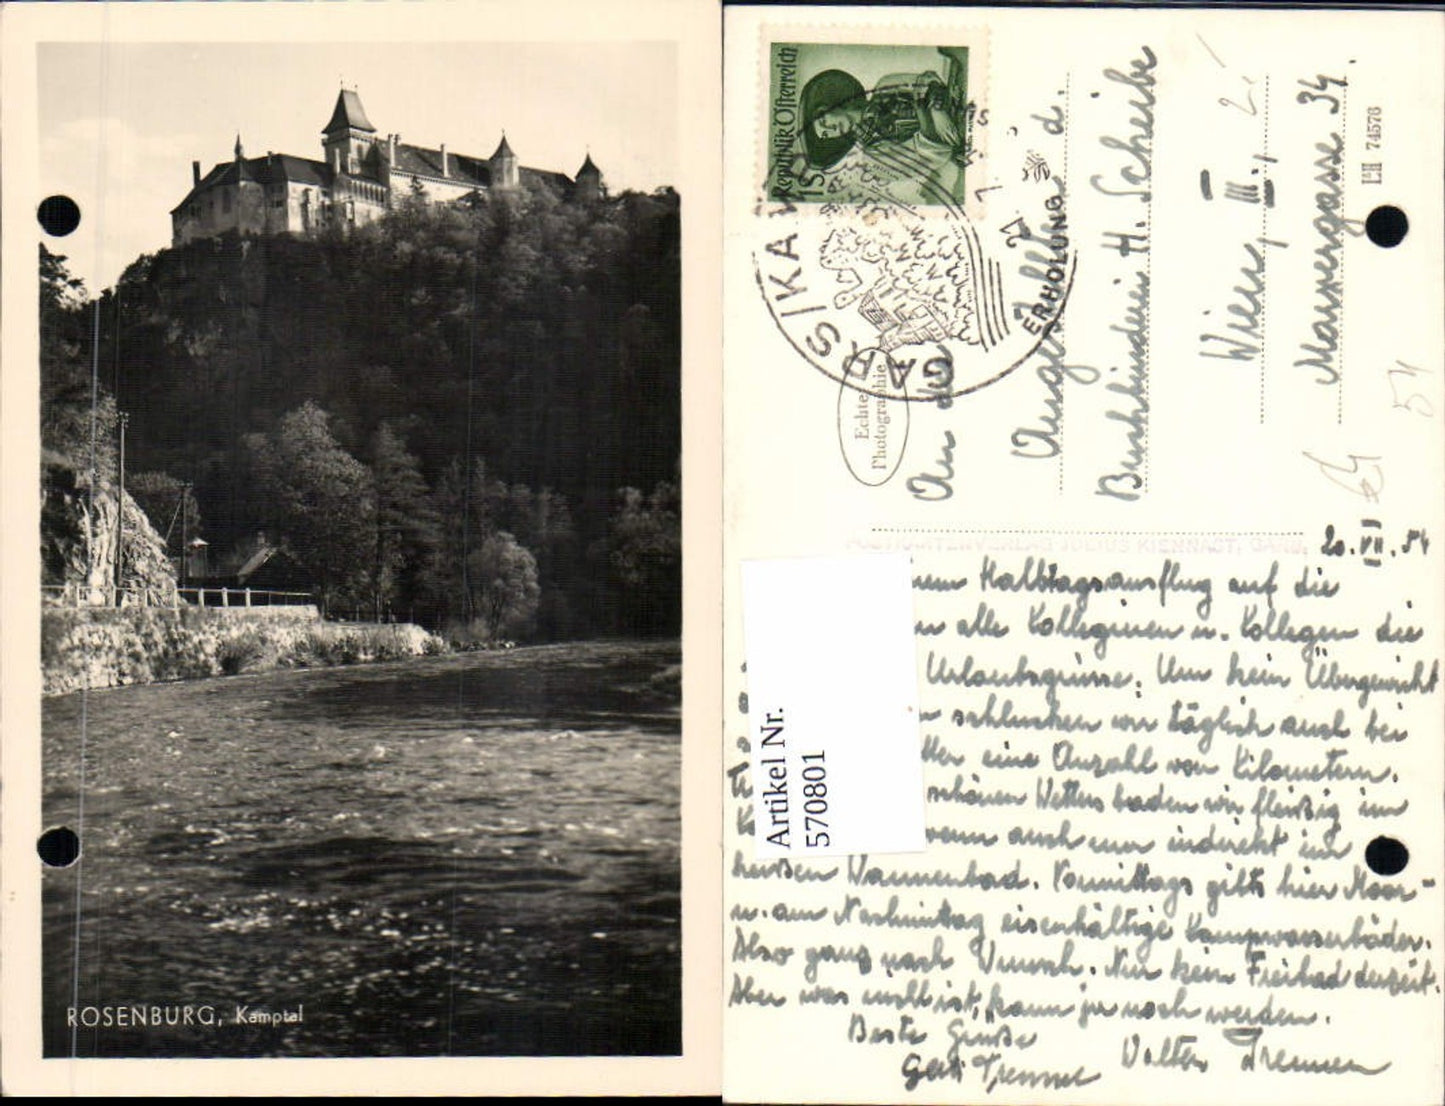 ROSENBURG, Kamptal
Republik Österreich
GARS/KAMP
ERHOLUNG
Echte
Photographie
An die
Angestellten d.
Buchbinderei H. Scheibe
Wien, III.,
Marxergasse 34.
LH 74576
54
POSTKARTENVERLAG JULIUS KIENNAST, GARS
20.VII.54
Artikel Nr.
570801
Halbtagsausflug auf die
alle Kolleginen u. Kollegen die
Urlaubsgrüsse. Um kein Übergewicht
schlucken wir täglich auch bei
eine Anzahl von Kilometern.
schönen Wetters baden wir fleißig im
wenn auch nur indirekt im
heißen Wannenbad. Vormittags gibts hier Moor-
u. am Nachmittag eisenhältige Kampwasserbäder.
Also ganz nach Wunsch. Nur kein Freibad derzeit.
Aber was nicht ist, kann ja noch werden.
Beste Grüße
Walter